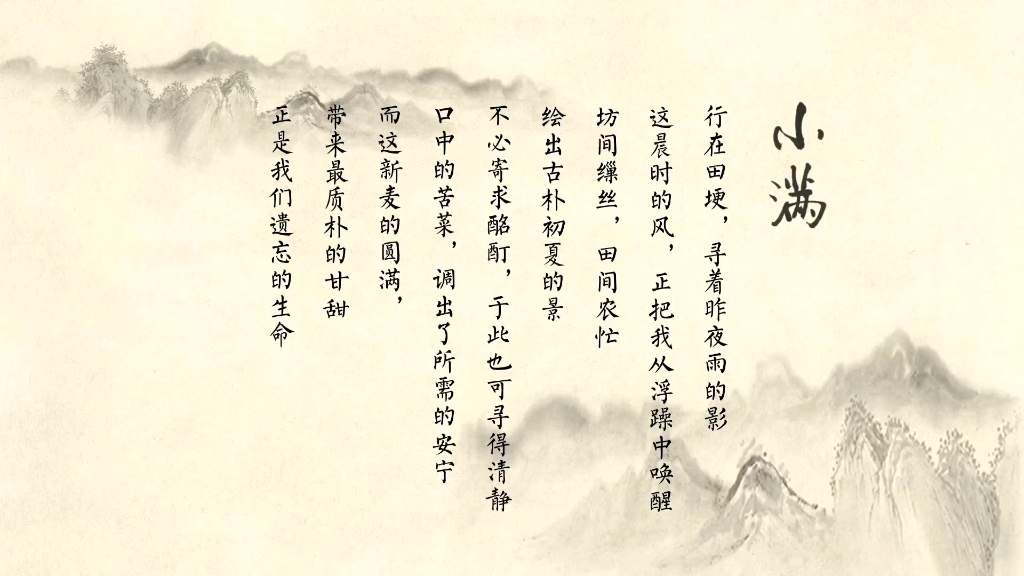 小满
行在田埂，寻着昨夜雨的影
这晨时的风，正把我从浮躁中唤醒
坊间缫丝，田间农忙
绘出古朴初夏的景
不必寄求酩酊，于此也可寻得清静
口中的苦菜，调出了所需的安宁
而这新麦的圆满，
带来最质朴的甘甜
正是我们遗忘的生命